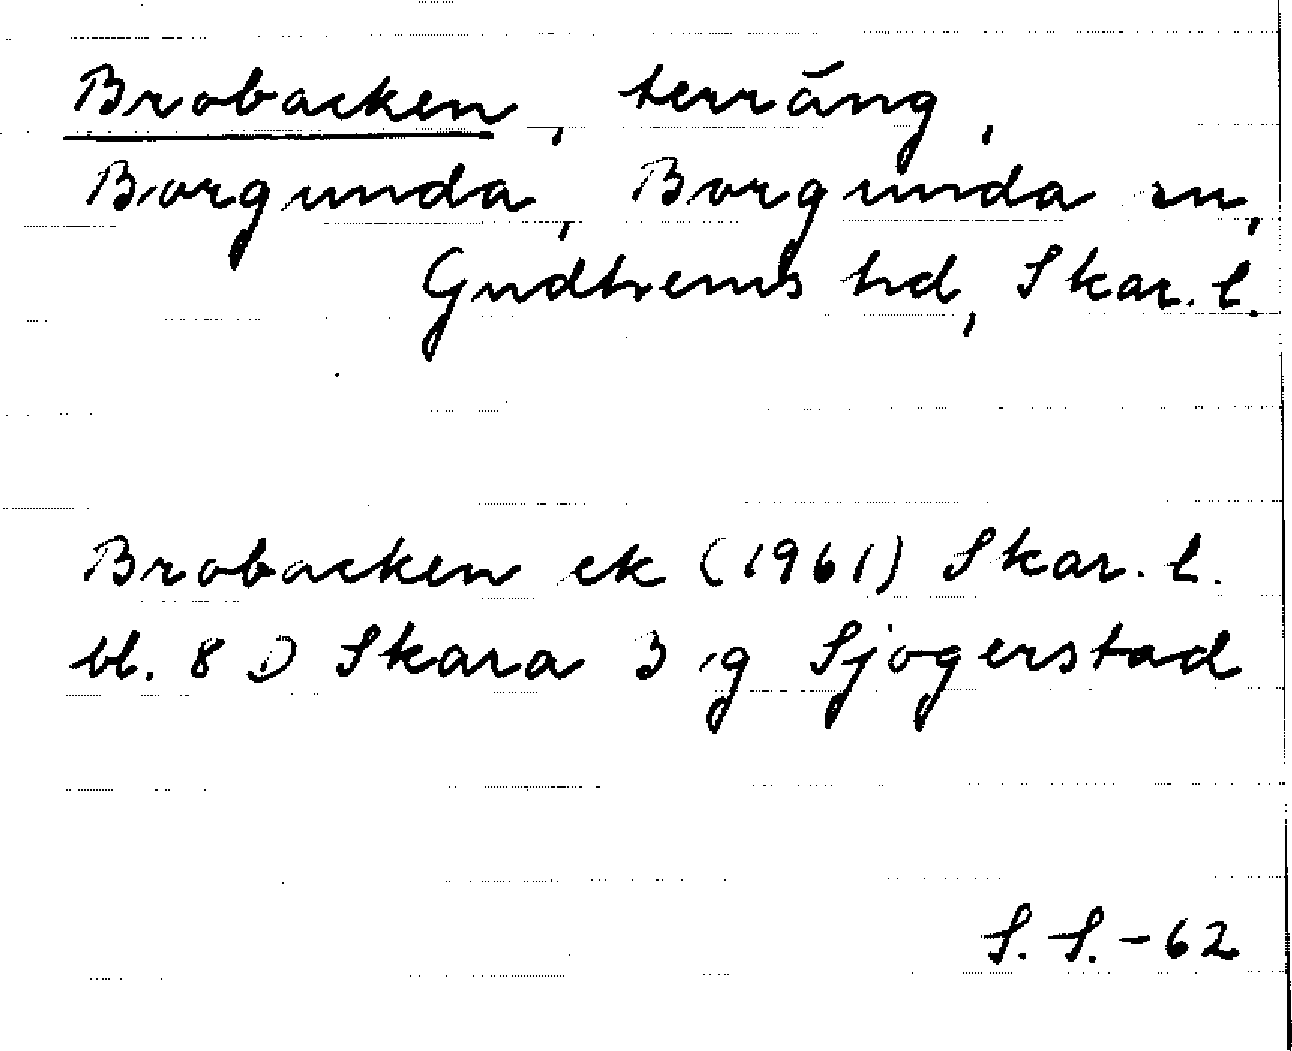 Brobacken, terräng,
Borgunda, Borgunda sn,
Gudhems hd, Skar. l.
Brobacken ek (1961) Skar. l.
bl. 8 D Skara 3 g Sjogerstad
S. S. - 62